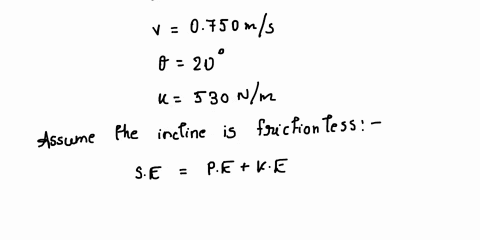 v = 0.750 m/s
θ = 20°
k = 530 N/m
Assume the incline is frictionless:-
S.E = P.E + K.E